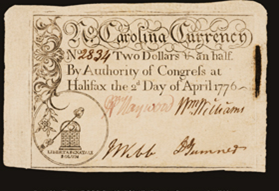 No. Carolina Currency
No 2834 Two Dollars & an half.
By Authority of Congreſs at
Halifax the 2d Day of April 1776
Wm Williams
J Webb